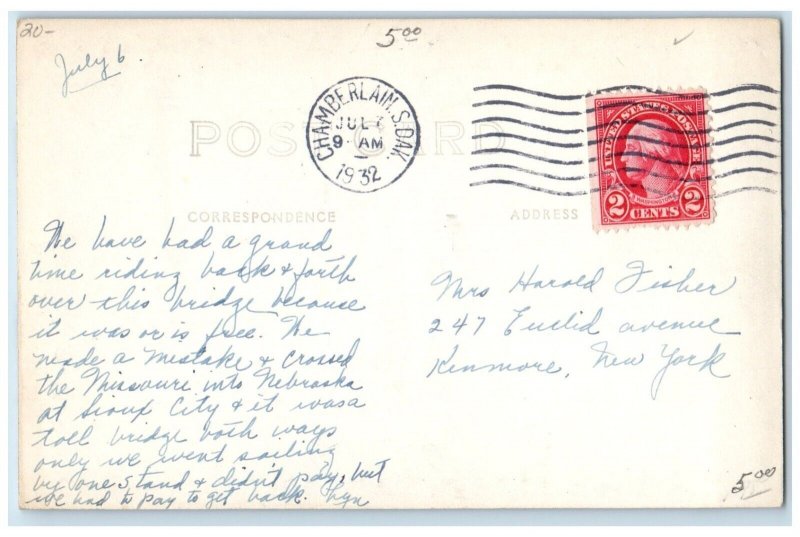 20-
5.00
July 6.
CHAMBERLAIN, S.DAK.
JUL 7
9 AM
1932
POST CARD
UNITED STATES POSTAGE
WASHINGTON
2 CENTS 2
CORRESPONDENCE
ADDRESS
We have had a grand
time riding back & forth
over this bridge because
it was or is free. We
made a mistake & crossed
the Missouri into Nebraska
at Sioux City & it was a
toll bridge both ways
only we went sailing
by one stand & didn't pay, but
we had to pay to get back. Lyn
Mrs Harold Fisher
247 Euclid avenue
Kenmore, New York
5.00